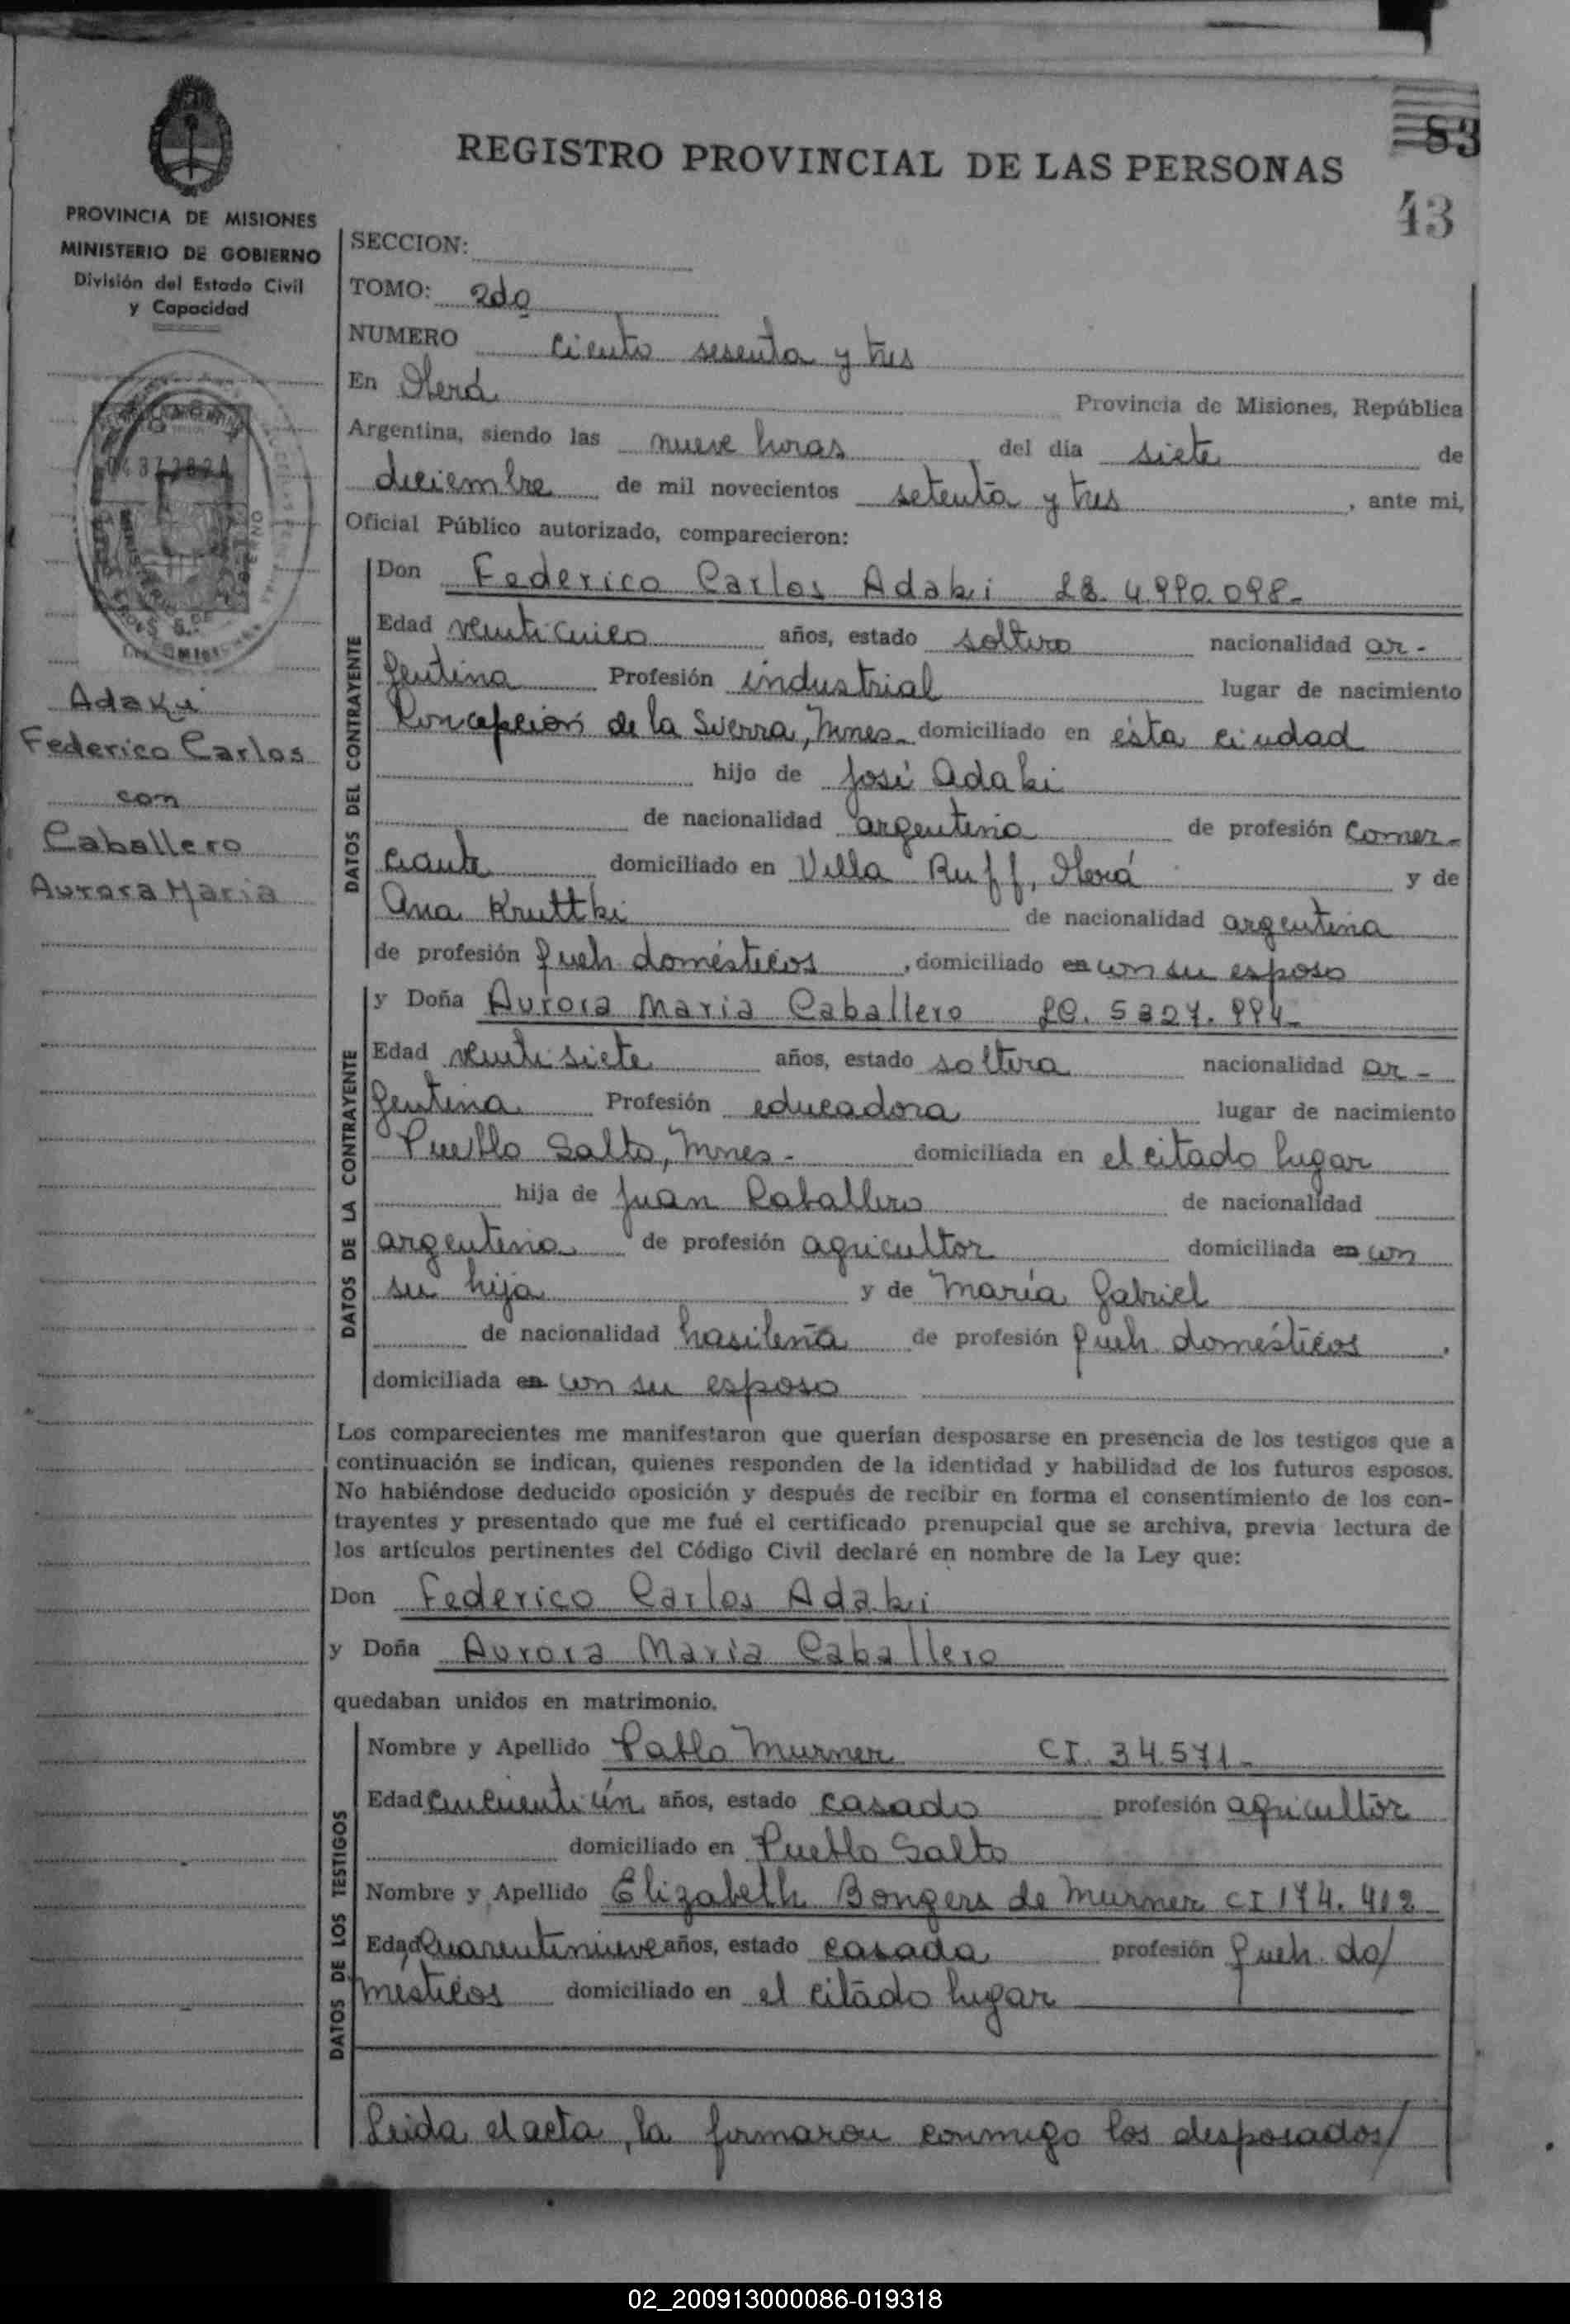 83
REGISTRO PROVINCIAL DE LAS PERSONAS
43
PROVINCIA DE MISIONES
MINISTERIO DE GOBIERNO
División del Estado Civil
y Capacidad
Adaki
Federico Carlos
con
Caballero
Aurora Maria
SECCION:
TOMO: 2do
NUMERO ciento sesenta y tres
En Oberá Provincia de Misiones, República
Argentina, siendo las nueve horas del día siete de
diciembre de mil novecientos setenta y tres, ante mi,
Oficial Público autorizado, comparecieron:
DATOS DEL CONTRAYENTE
Don Federico Carlos Adaki
Edad veinticinco años, estado soltero nacionalidad ar-
gentina Profesión industrial lugar de nacimiento
Concepción de la Sierra, Mnes- domiciliado en ésta ciudad
hijo de José Adaki
de nacionalidad argentina de profesión comer-
ciante domiciliado en Villa Ruff, Oberá y de
Ana Kruttki de nacionalidad argentina
de profesión queh. domésticos, domiciliado en con su esposo
DATOS DE LA CONTRAYENTE
y Doña Aurora Maria Caballero
Edad veintisiete años, estado soltera nacionalidad ar-
gentina Profesión educadora lugar de nacimiento
Pueblo Salto, Mnes- domiciliada en el citado lugar
hija de Juan Caballero de nacionalidad
argentina de profesión agricultor domiciliada en con
su hija y de María Gabriel
de nacionalidad brasileña de profesión queh. domésticos.
domiciliada en con su esposo
Los comparecientes me manifestaron que querían desposarse en presencia de los testigos que a
continuación se indican, quienes responden de la identidad y habilidad de los futuros esposos.
No habiéndose deducido oposición y después de recibir en forma el consentimiento de los con-
trayentes y presentado que me fué el certificado prenupcial que se archiva, previa lectura de
los artículos pertinentes del Código Civil declaré en nombre de la Ley que:
Don Federico Carlos Adaki
y Doña Aurora Maria Caballero
quedaban unidos en matrimonio.
DATOS DE LOS TESTIGOS
Nombre y Apellido Pablo Murner CI. 34.571-
Edad cincuentiún años, estado casado profesión agricultor
domiciliado en Pueblo Salto
Nombre y Apellido Elizabeth Bongers de Murner CI 174.412
Edad cuarentinueve años, estado casada profesión queh. do/
mésticos domiciliado en el citado lugar
Leida el acta, la firmaron conmigo los desposados/
02_200913000086-019318